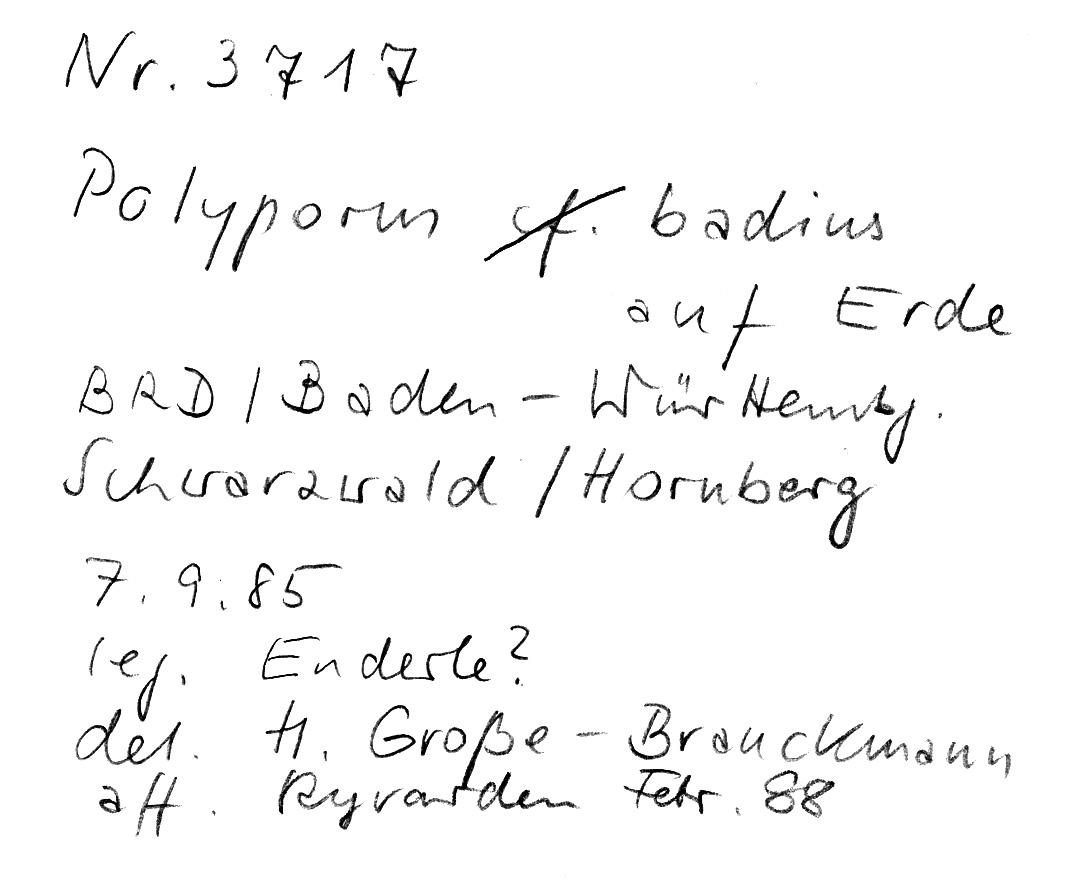 Nr. 3717
Polyporus cf. badius
auf Erde
BRD / Baden-Württembg.
Schwarzwald / Hornberg
7.9.85
leg. Enderle?
det. H. Große-Brauckmann
aff. Ryvarden Febr. 88